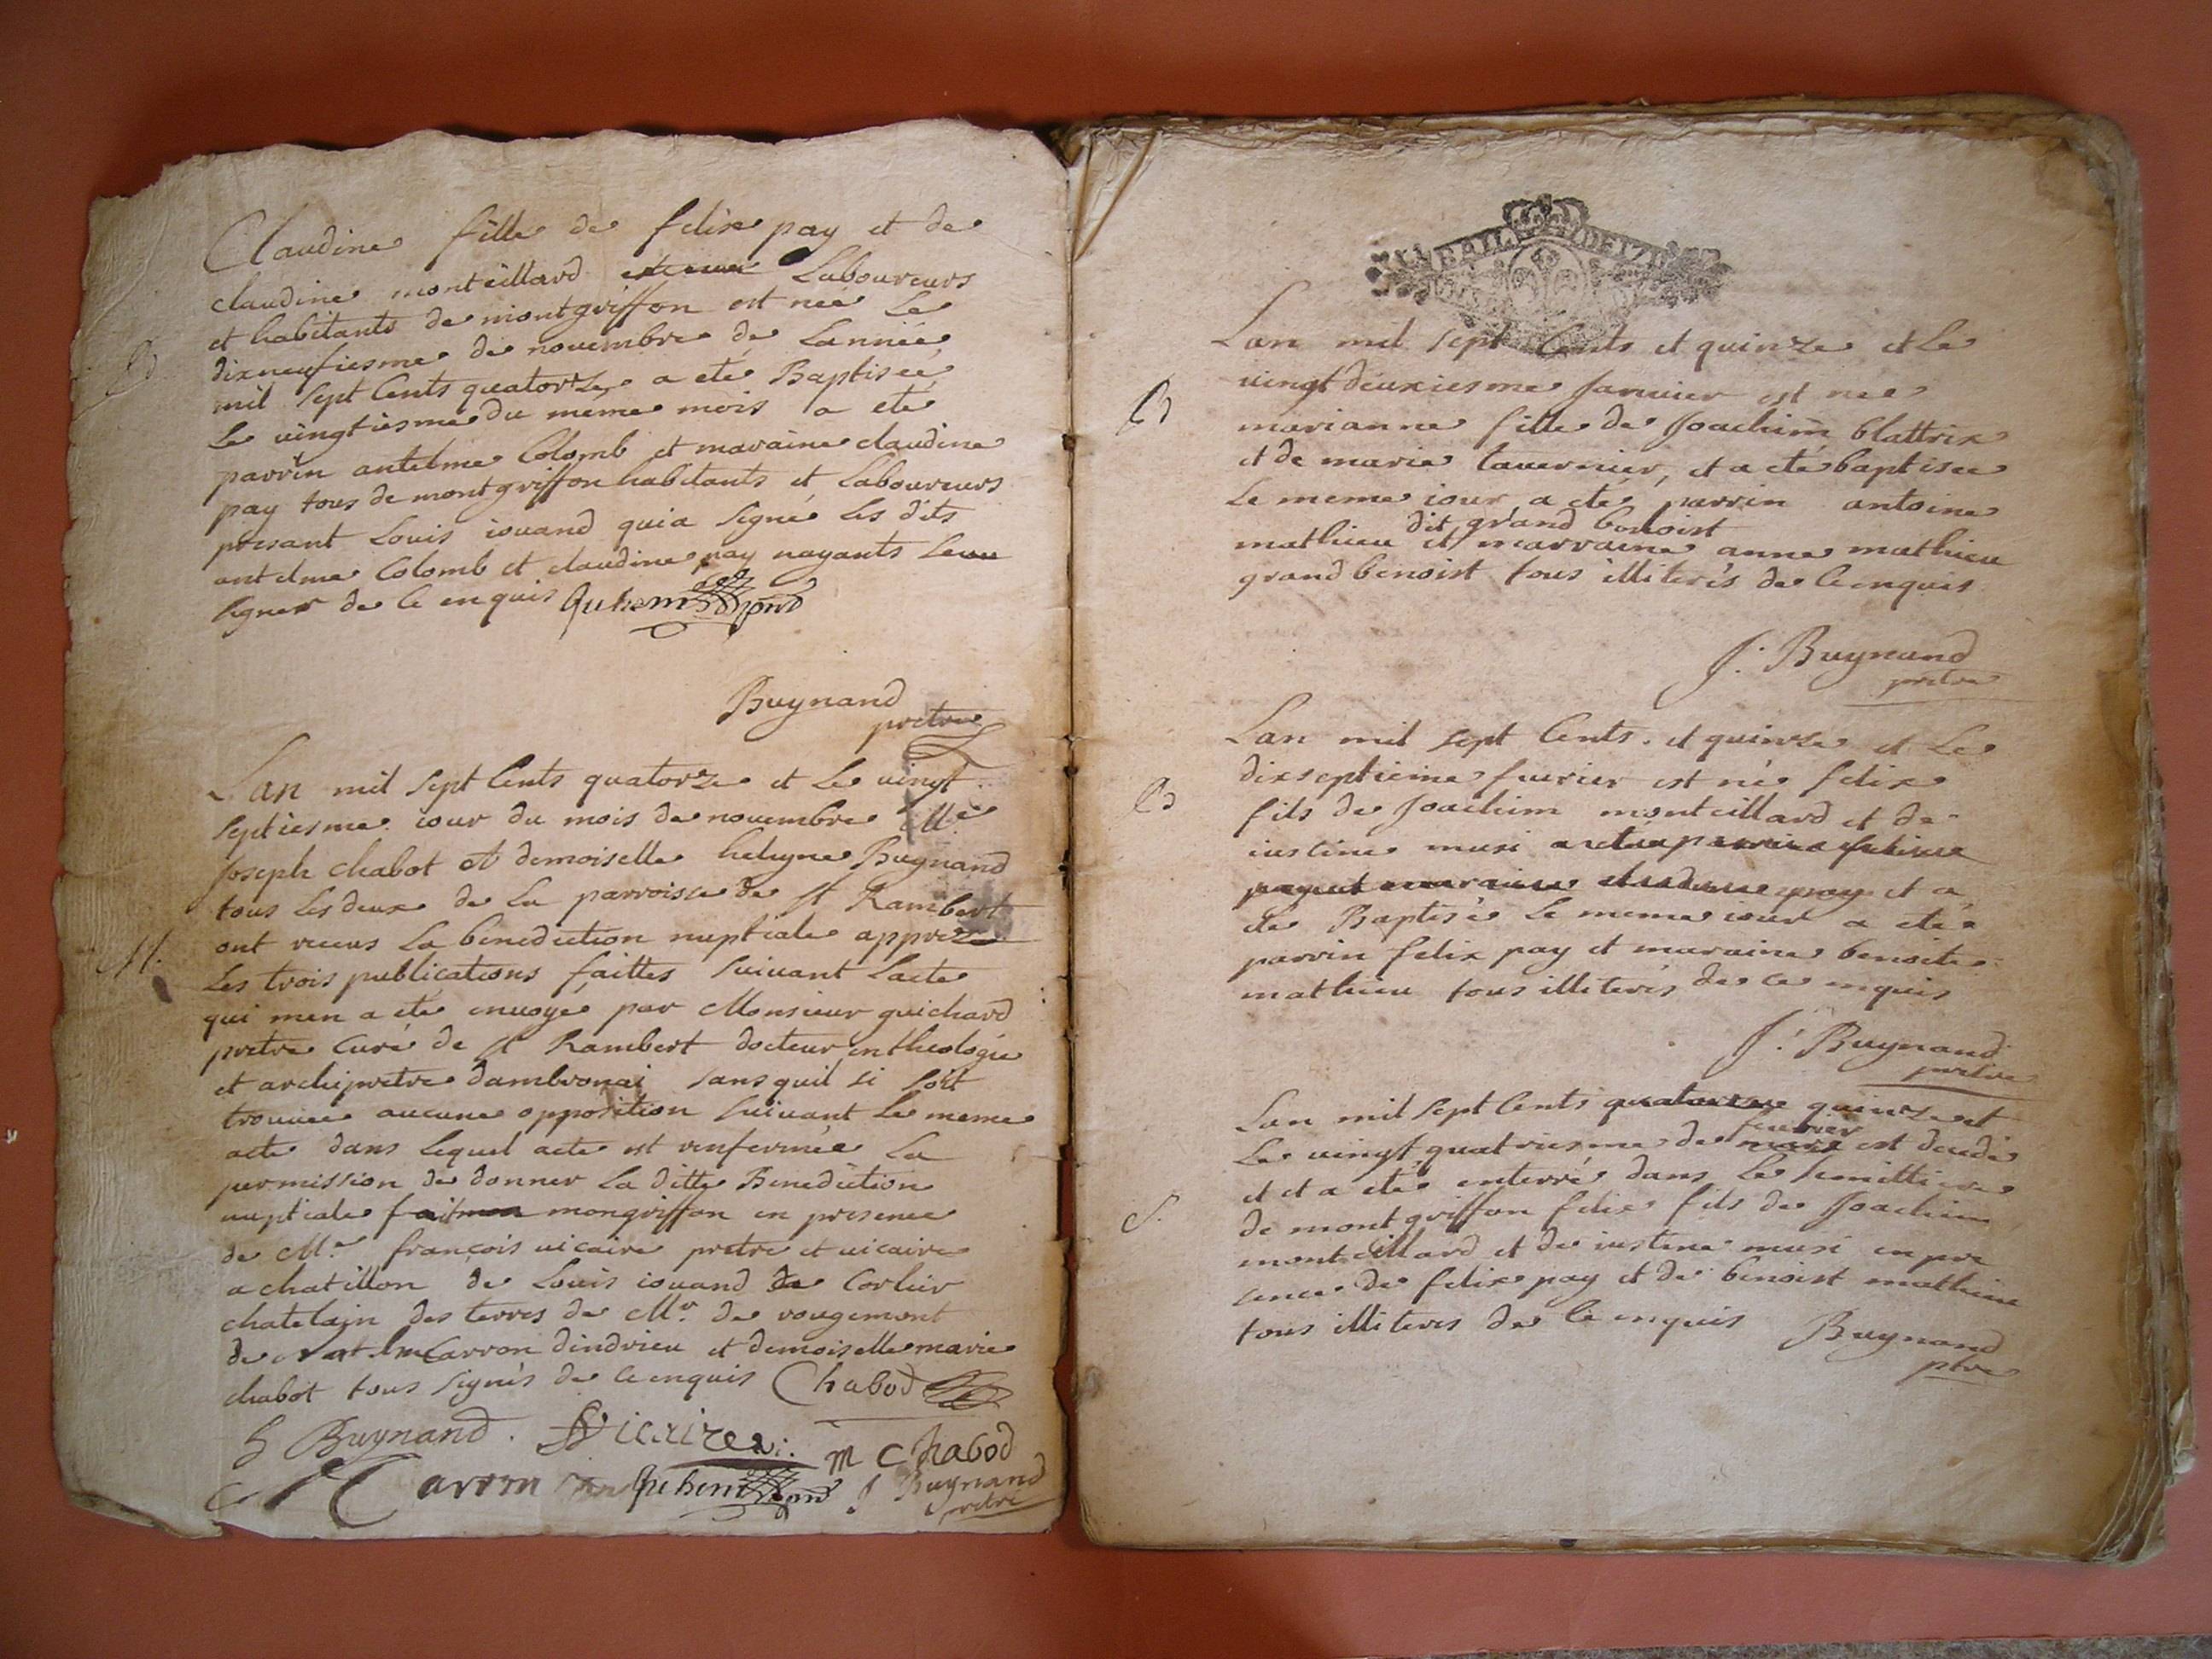 Claudine fille de felix pay et de
claudine monteillard Laboureurs
et habitants de montgriffon est neé Le
dixneufiesme de novembre de Lanneé
mil sept Cents quatorze a eté Baptiseé
Le vingtiesme du méme mois a eté
parrin antelme Colomb et maraine claudine
pay tous de montgriffon habitants et Laboureurs
presant Louis iouand qui a signé Les dits
antelme Colomb et claudine pay nayants
signer de ce enquis
B
Buynand
pretre
Lan mil sept Cents quatorze et Le vingt
septiesme iour du mois de novembre
Joseph chabot et demoiselle helegne Buynand
tous Les deux de La parroisse de st Rambert
ont receus La benediction nuptiale apprez
M.
Les trois publications faittes suivant Lacte
qui men a eté envoyé par Monsieur guichard
pretre Curé de st Rambert docteur en theologie
et archipretre dambronai sans quil si soit
trouvee aucune opposition suivant Le meme
acte dans Lequel acte est renfermée La
permission de donner La ditte Benediction
nuptiale mongriffon en presence
de Mr françois vicaire pretre et vicaire
a chatillon de Louis iouand de Corlier
chatelain des terres de Mr. de rougemont
de Carron dindrieu et demoiselle marie
chabot tous signés de ce enquis Chabod
h Buynand. Vicaire
m chabod
Carron
J Buynand
pretre
BAIL DE LIZ
Lan mil sept Cents et quinze et Le
vingt deuxiesme Janvier est nee
B
marianne fille de Joachim blattrix
et de marie tavernier, et a eté baptisee
Le meme iour a eté parrin antoine
dit grand benoist
mathieu et marraine anne mathieu
grand benoist tous illiterés de ce enquis
J. Buynand
pretre
Lan mil sept Cents et quinze et Le
dixseptieme fevrier est né felix
B
fils de Joachim monteillard et de
iustine musi
et a
eté Baptisé Le meme iour a eté
parrin felix pay et maraine benoite
mathieu tous illiterés de ce enquis
J. Buynand
pretre
Lan mil sept Cents quinze et
fevrier
Le vingt quatriesme de est decedé
et et a eté enterré dans Le semittiere
S.
de montgriffon felix fils de Joachim
monteillard et de iustine musi en pre
sence de felix pay et de benoist mathieu
tous illiteres de ce enquis Buynand
ptre